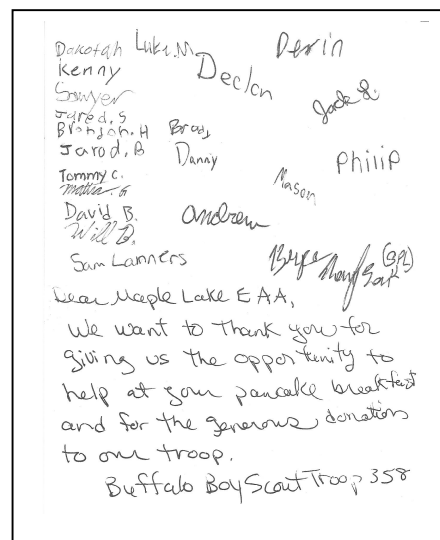 Dakotah Luke.M Derin
Kenny Declan
Sawyer Jack L.
Jared.S
Brandon.H Brady
Jarod.B Danny Philip
Tommy C. Mason
David B. Andrew
Will D.
Sam Lanners (SPL)
Dear Maple Lake EAA,
We want to thank you for
giving us the opportunity to
help at your pancake breakfast
and for the generous donation
to our troop.
Buffalo Boy Scout Troop 358